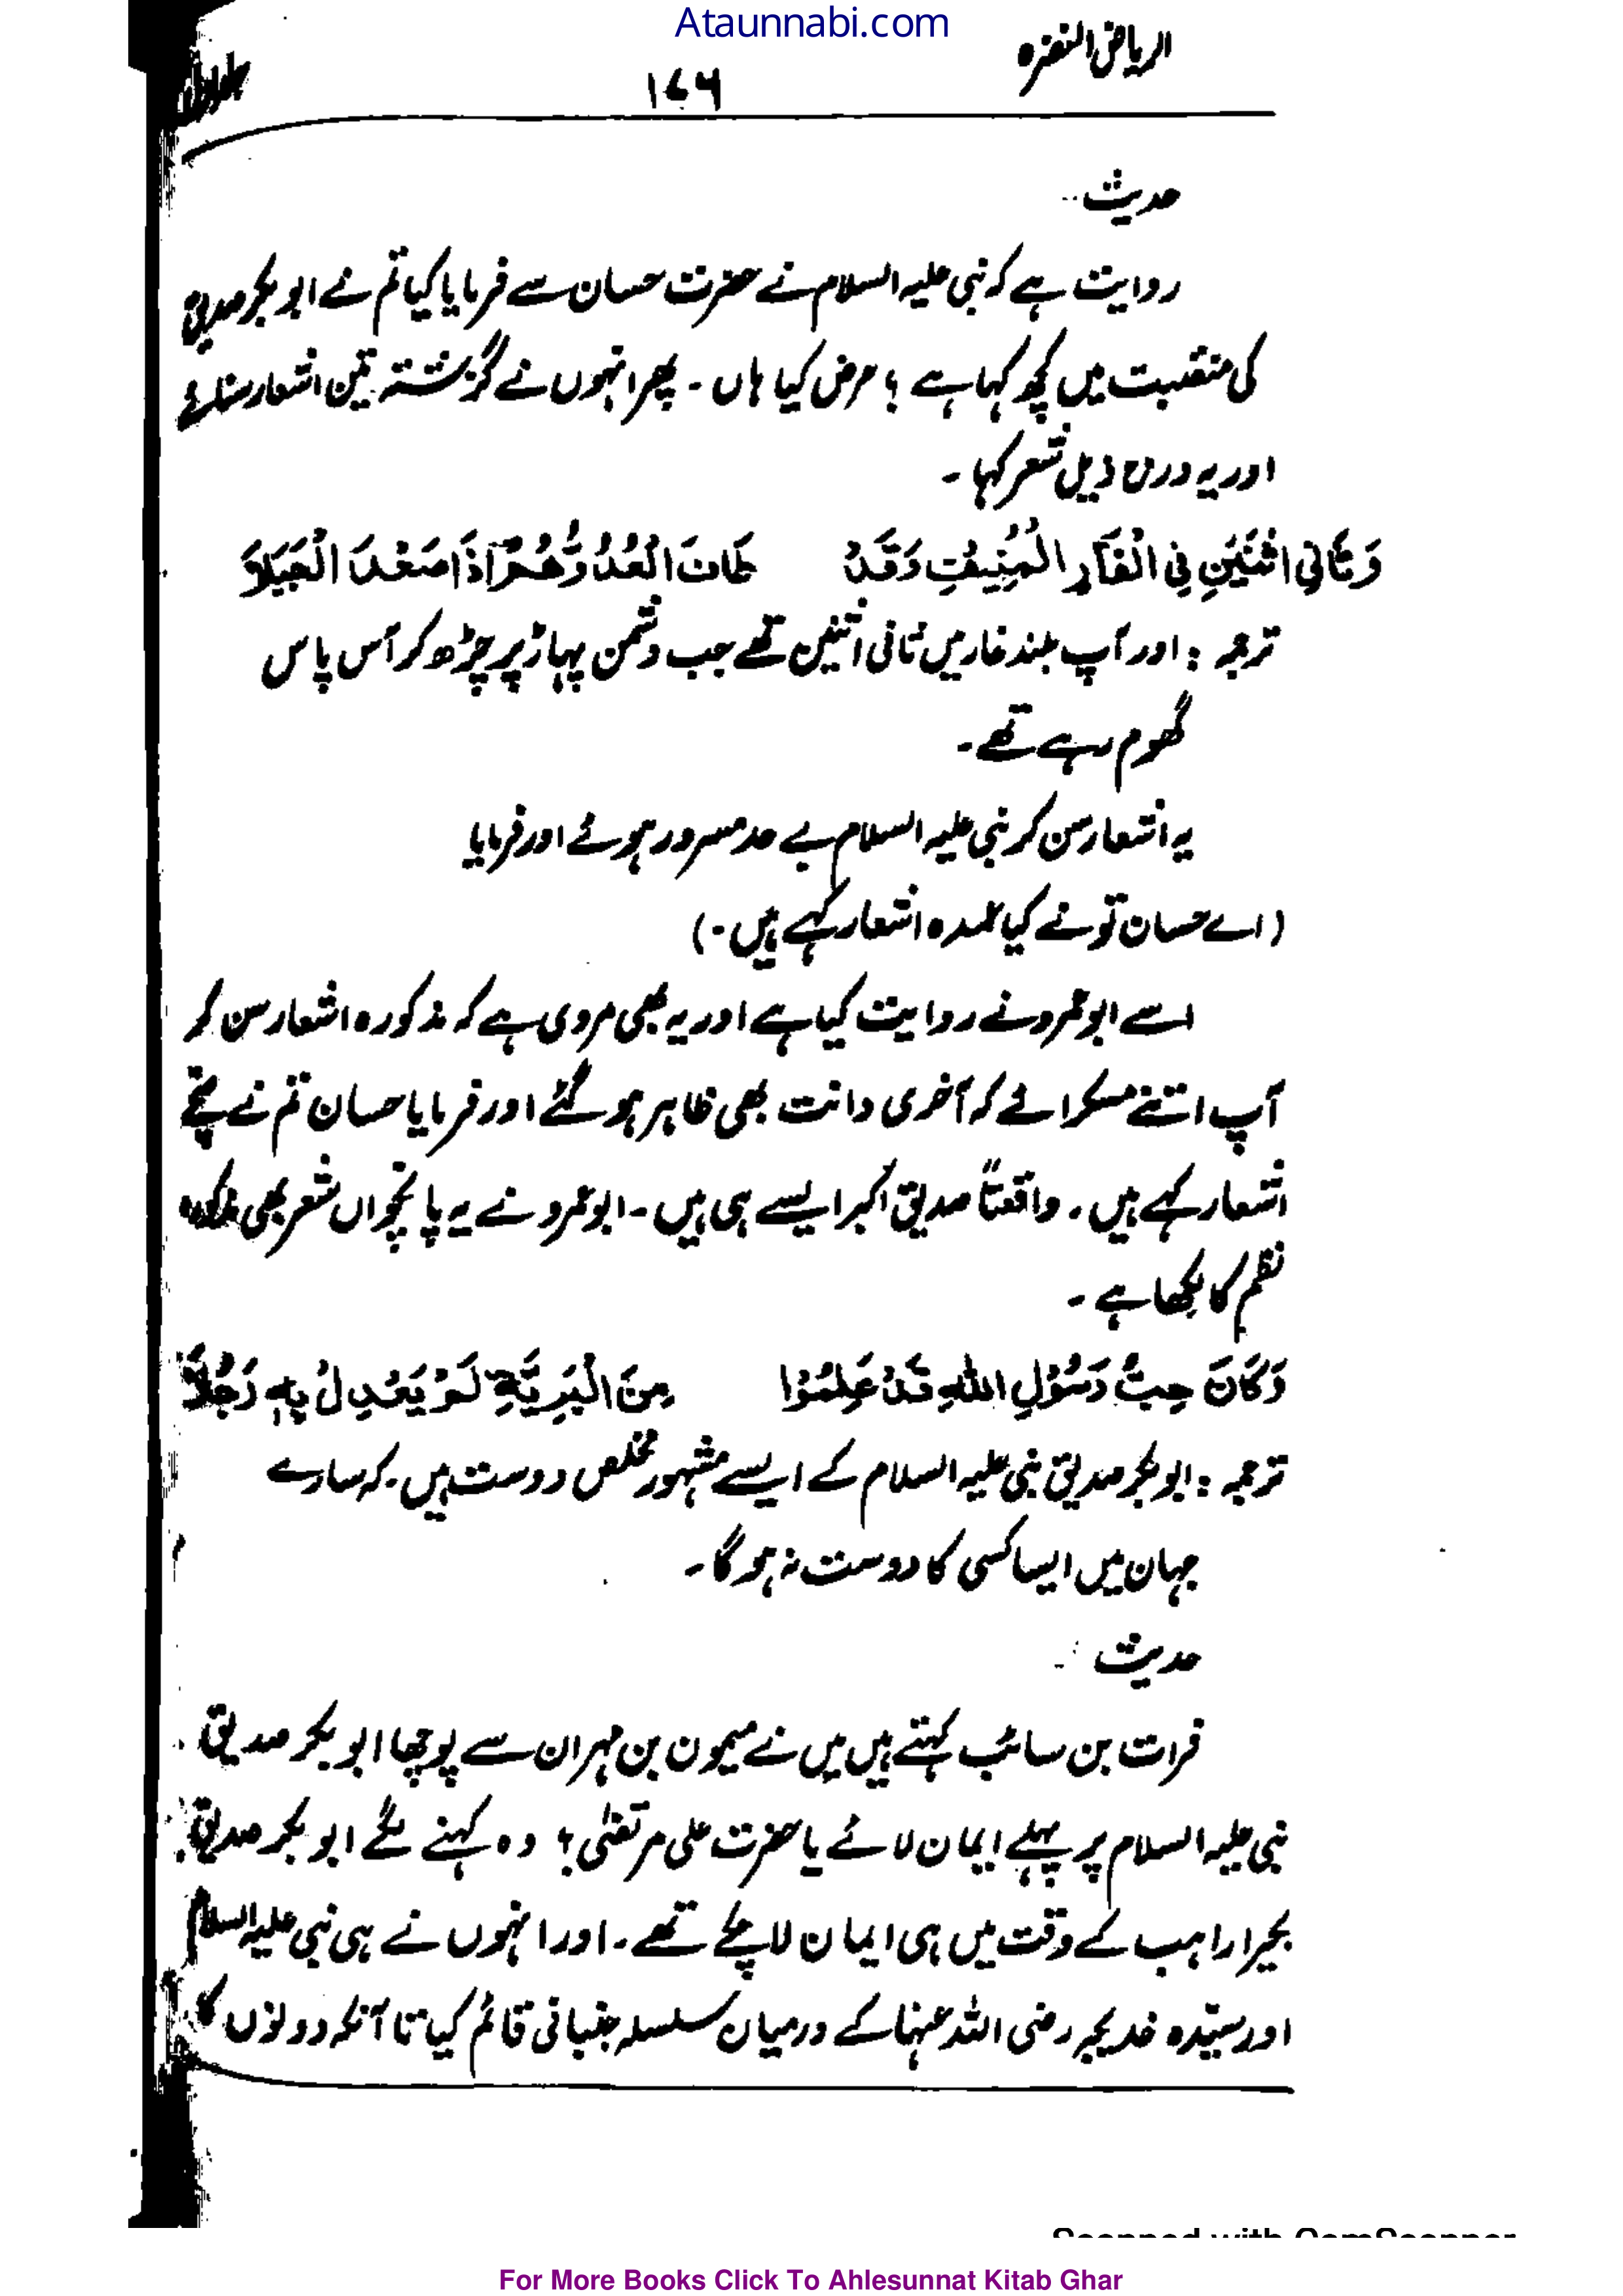 Ataunnabi.com
الریاض النضرہ
۱۷۶
جلد اول
حدیث۔
روایت ہے کہ نبی علیہ السلام نے حضرت حسان سے فرمایا کیا تم نے ابوبکر صدیق
کی منقبت میں کچھ کہا ہے ؟ عرض کیا ہاں ۔ پھر انہوں نے گزشتہ تین اشعار سنائے
اور یہ درج ذیل شعر کہا ۔
وَثَانِیَ اثْنَیْنِ فِی الْغَارِ الْمُنِیْفِ وَقَدْ طَافَ الْعُدُوُّ هُمْ اِذَا صَعْدَ الْجَبَلَا
ترجمہ : اور آپ بلند غار میں ثانی اثنین تھے جب دشمن پہاڑ پر چڑھ کر آس پاس
گھوم رہے تھے۔
یہ اشعار سن کر نبی علیہ السلام بے حد مسرور ہوئے اور فرمایا
(اے حسان تو نے کیا عمدہ اشعار کہے ہیں۔)
اسے ابوعمرو نے روایت کیا ہے اور یہ بھی مروی ہے کہ مذکورہ اشعار سن کر
آپ اتنے مسکرائے کہ آخری دانت بھی ظاہر ہو گئے اور فرمایا حسان تم نے سچے
اشعار کہے ہیں ۔ واقعتاً صدیق اکبر ایسے ہی ہیں ۔ ابوعمرو نے یہ پانچواں شعر بھی مذکورہ
نظم کا لکھا ہے ۔
وَكَانَ حِبَّ رَسُوْلِ اللّٰهِ قَدْ عَلِمُوْا مِنَ الْبَرِیَّةِ لَمْ یَعْدِلْ بِهٖ رَجُلًا
ترجمہ : ابوبکر صدیق نبی علیہ السلام کے ایسے مشہور مخلص دوست ہیں ۔ کہ سارے
جہان میں ایسا کسی کا دوست نہ ہوگا ۔
حدیث ۔
فرات بن سائب کہتے ہیں میں نے میمون بن مہران سے پوچھا ابوبکر صدیق
نبی علیہ السلام پر پہلے ایمان لائے یا حضرت علی مرتضیٰ ؟ وہ کہنے لگے ابوبکر صدیق
بحیرا راہب کے وقت میں ہی ایمان لا چکے تھے ۔ اور انہوں نے ہی نبی علیہ السلام
اور سیّدہ خدیجہ رضی اللہ عنہا کے درمیان سلسلہ جنبانی قائم کیا تا آنکہ دونوں کا
Scanned with CamScanner
For More Books Click To Ahlesunnat Kitab Ghar